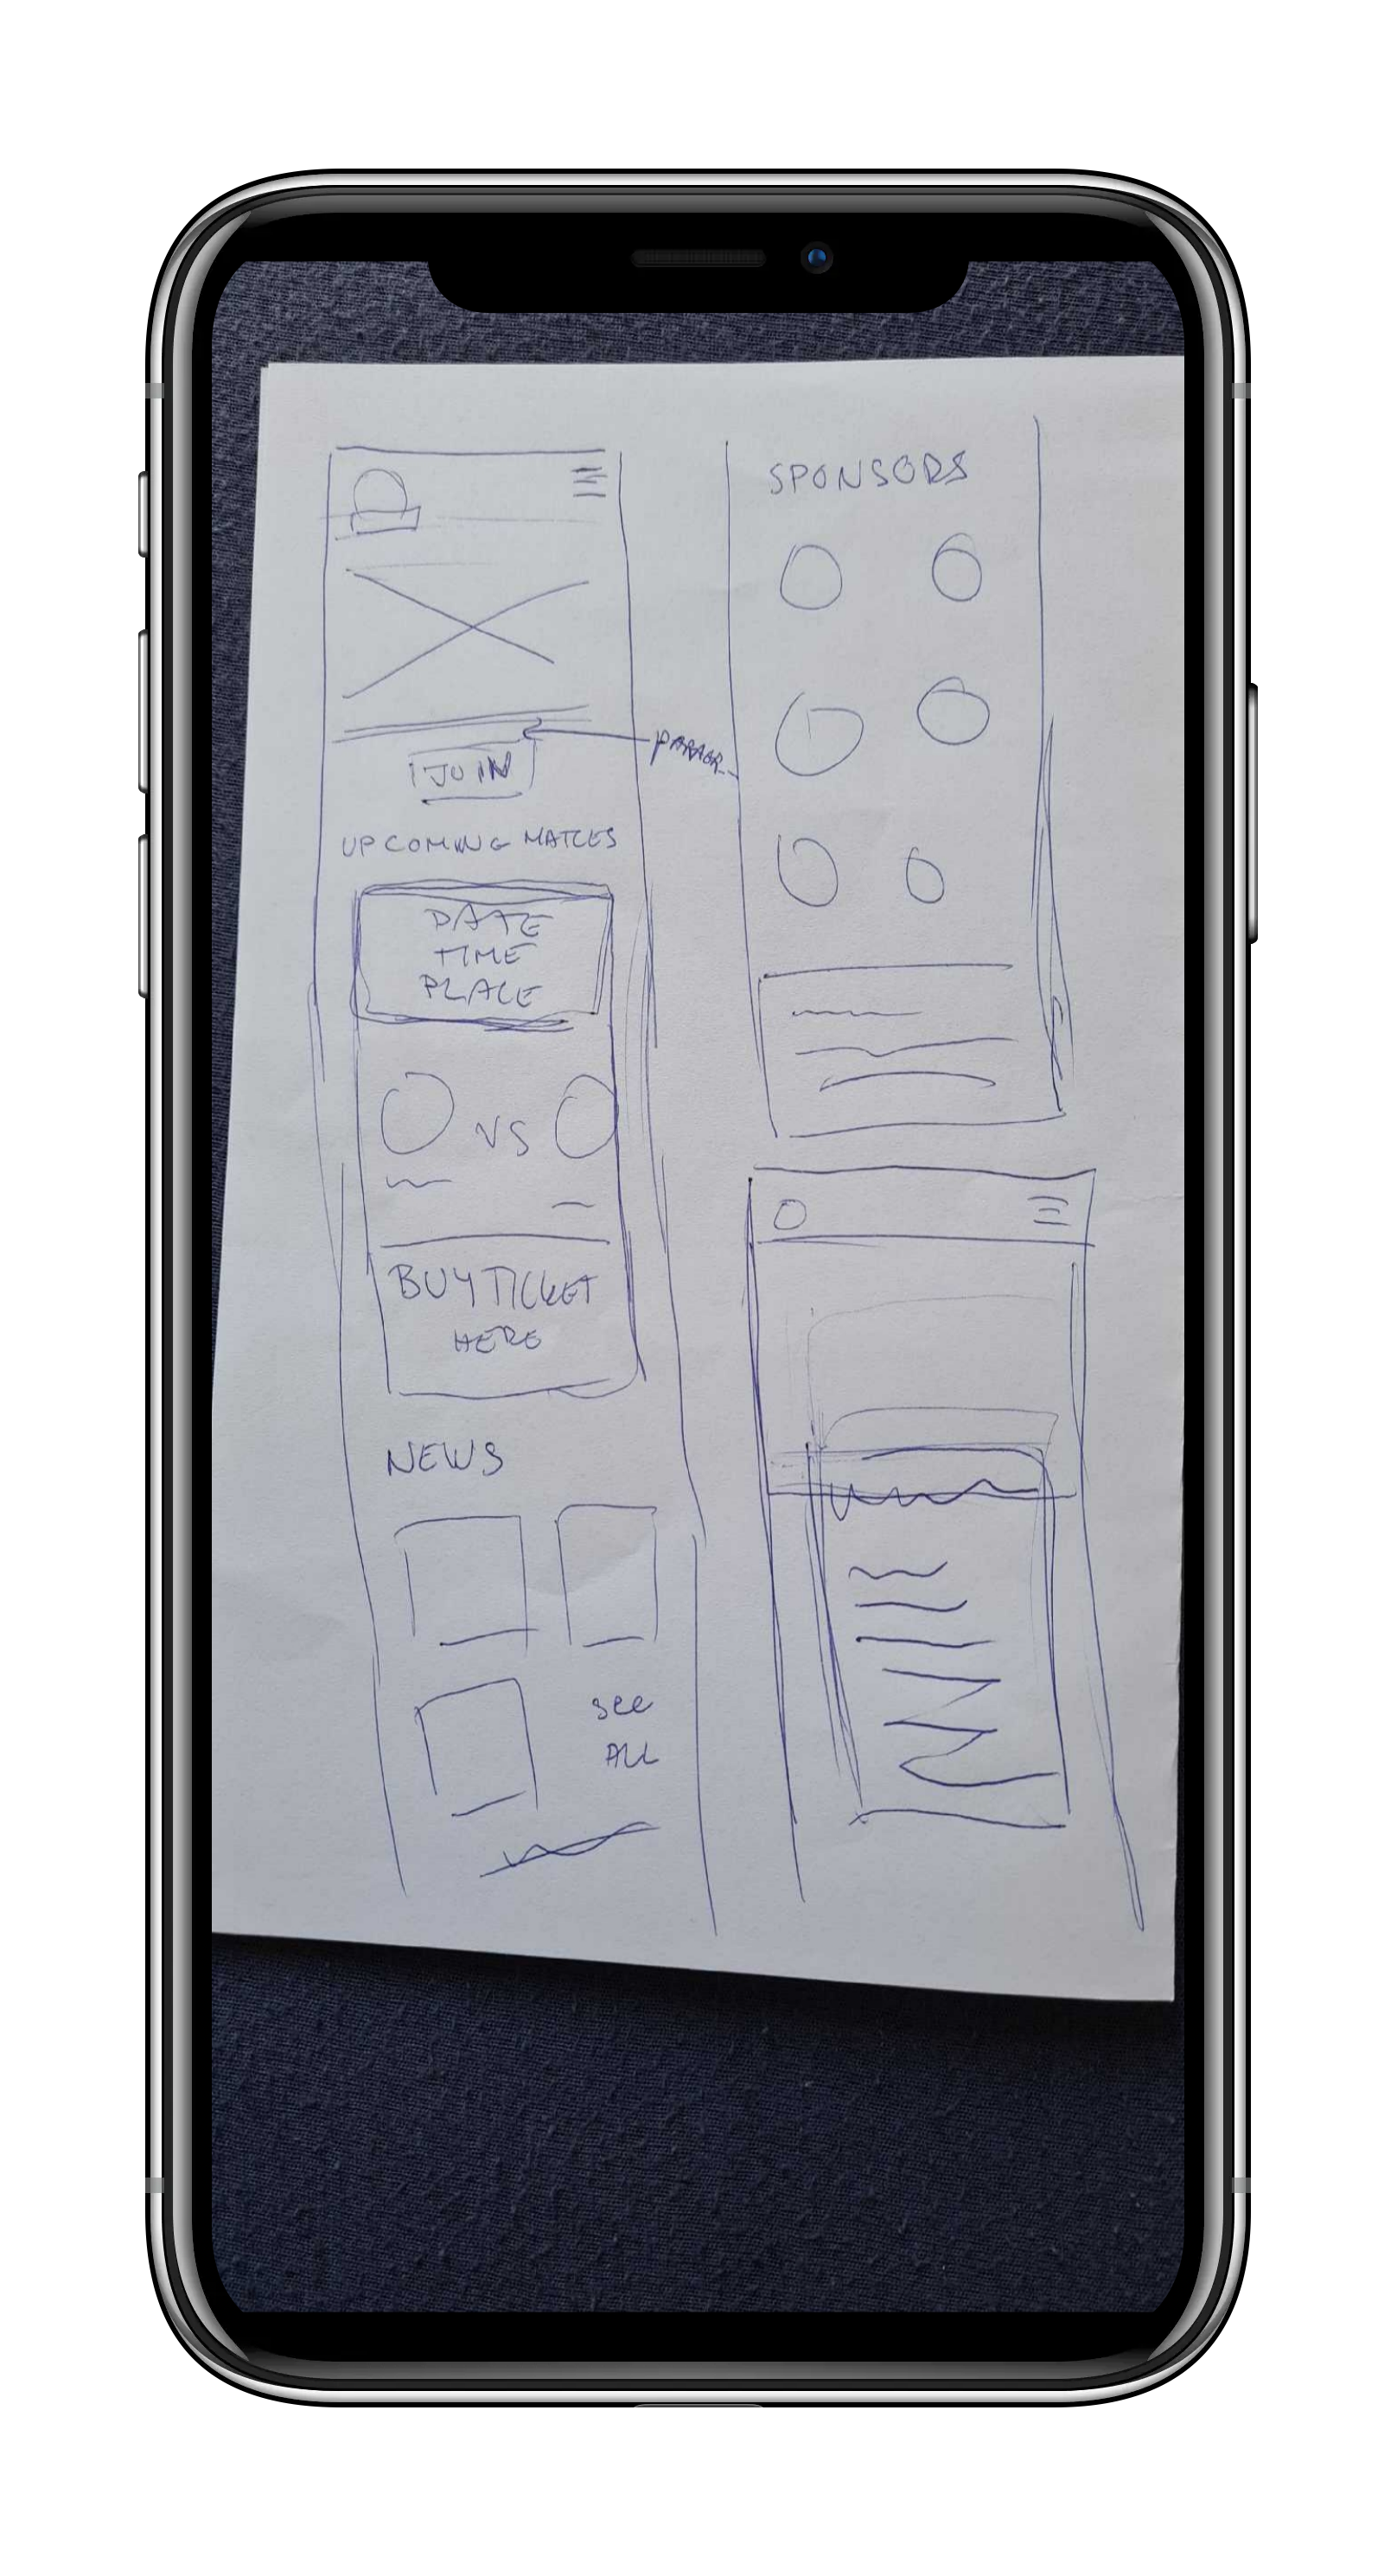 JOIN
UPCOMING MATCES
DATE
TIME
PLACE
VS
BUY TICKET
HERE
NEWS
see
ALL
SPONSORS